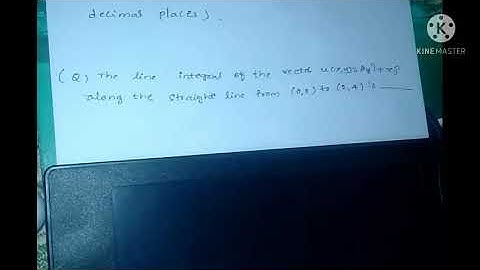 decimal places).
KINEMASTER
(Q) The line integral of the vector
along the straight line from (0,0) to (2,4) is